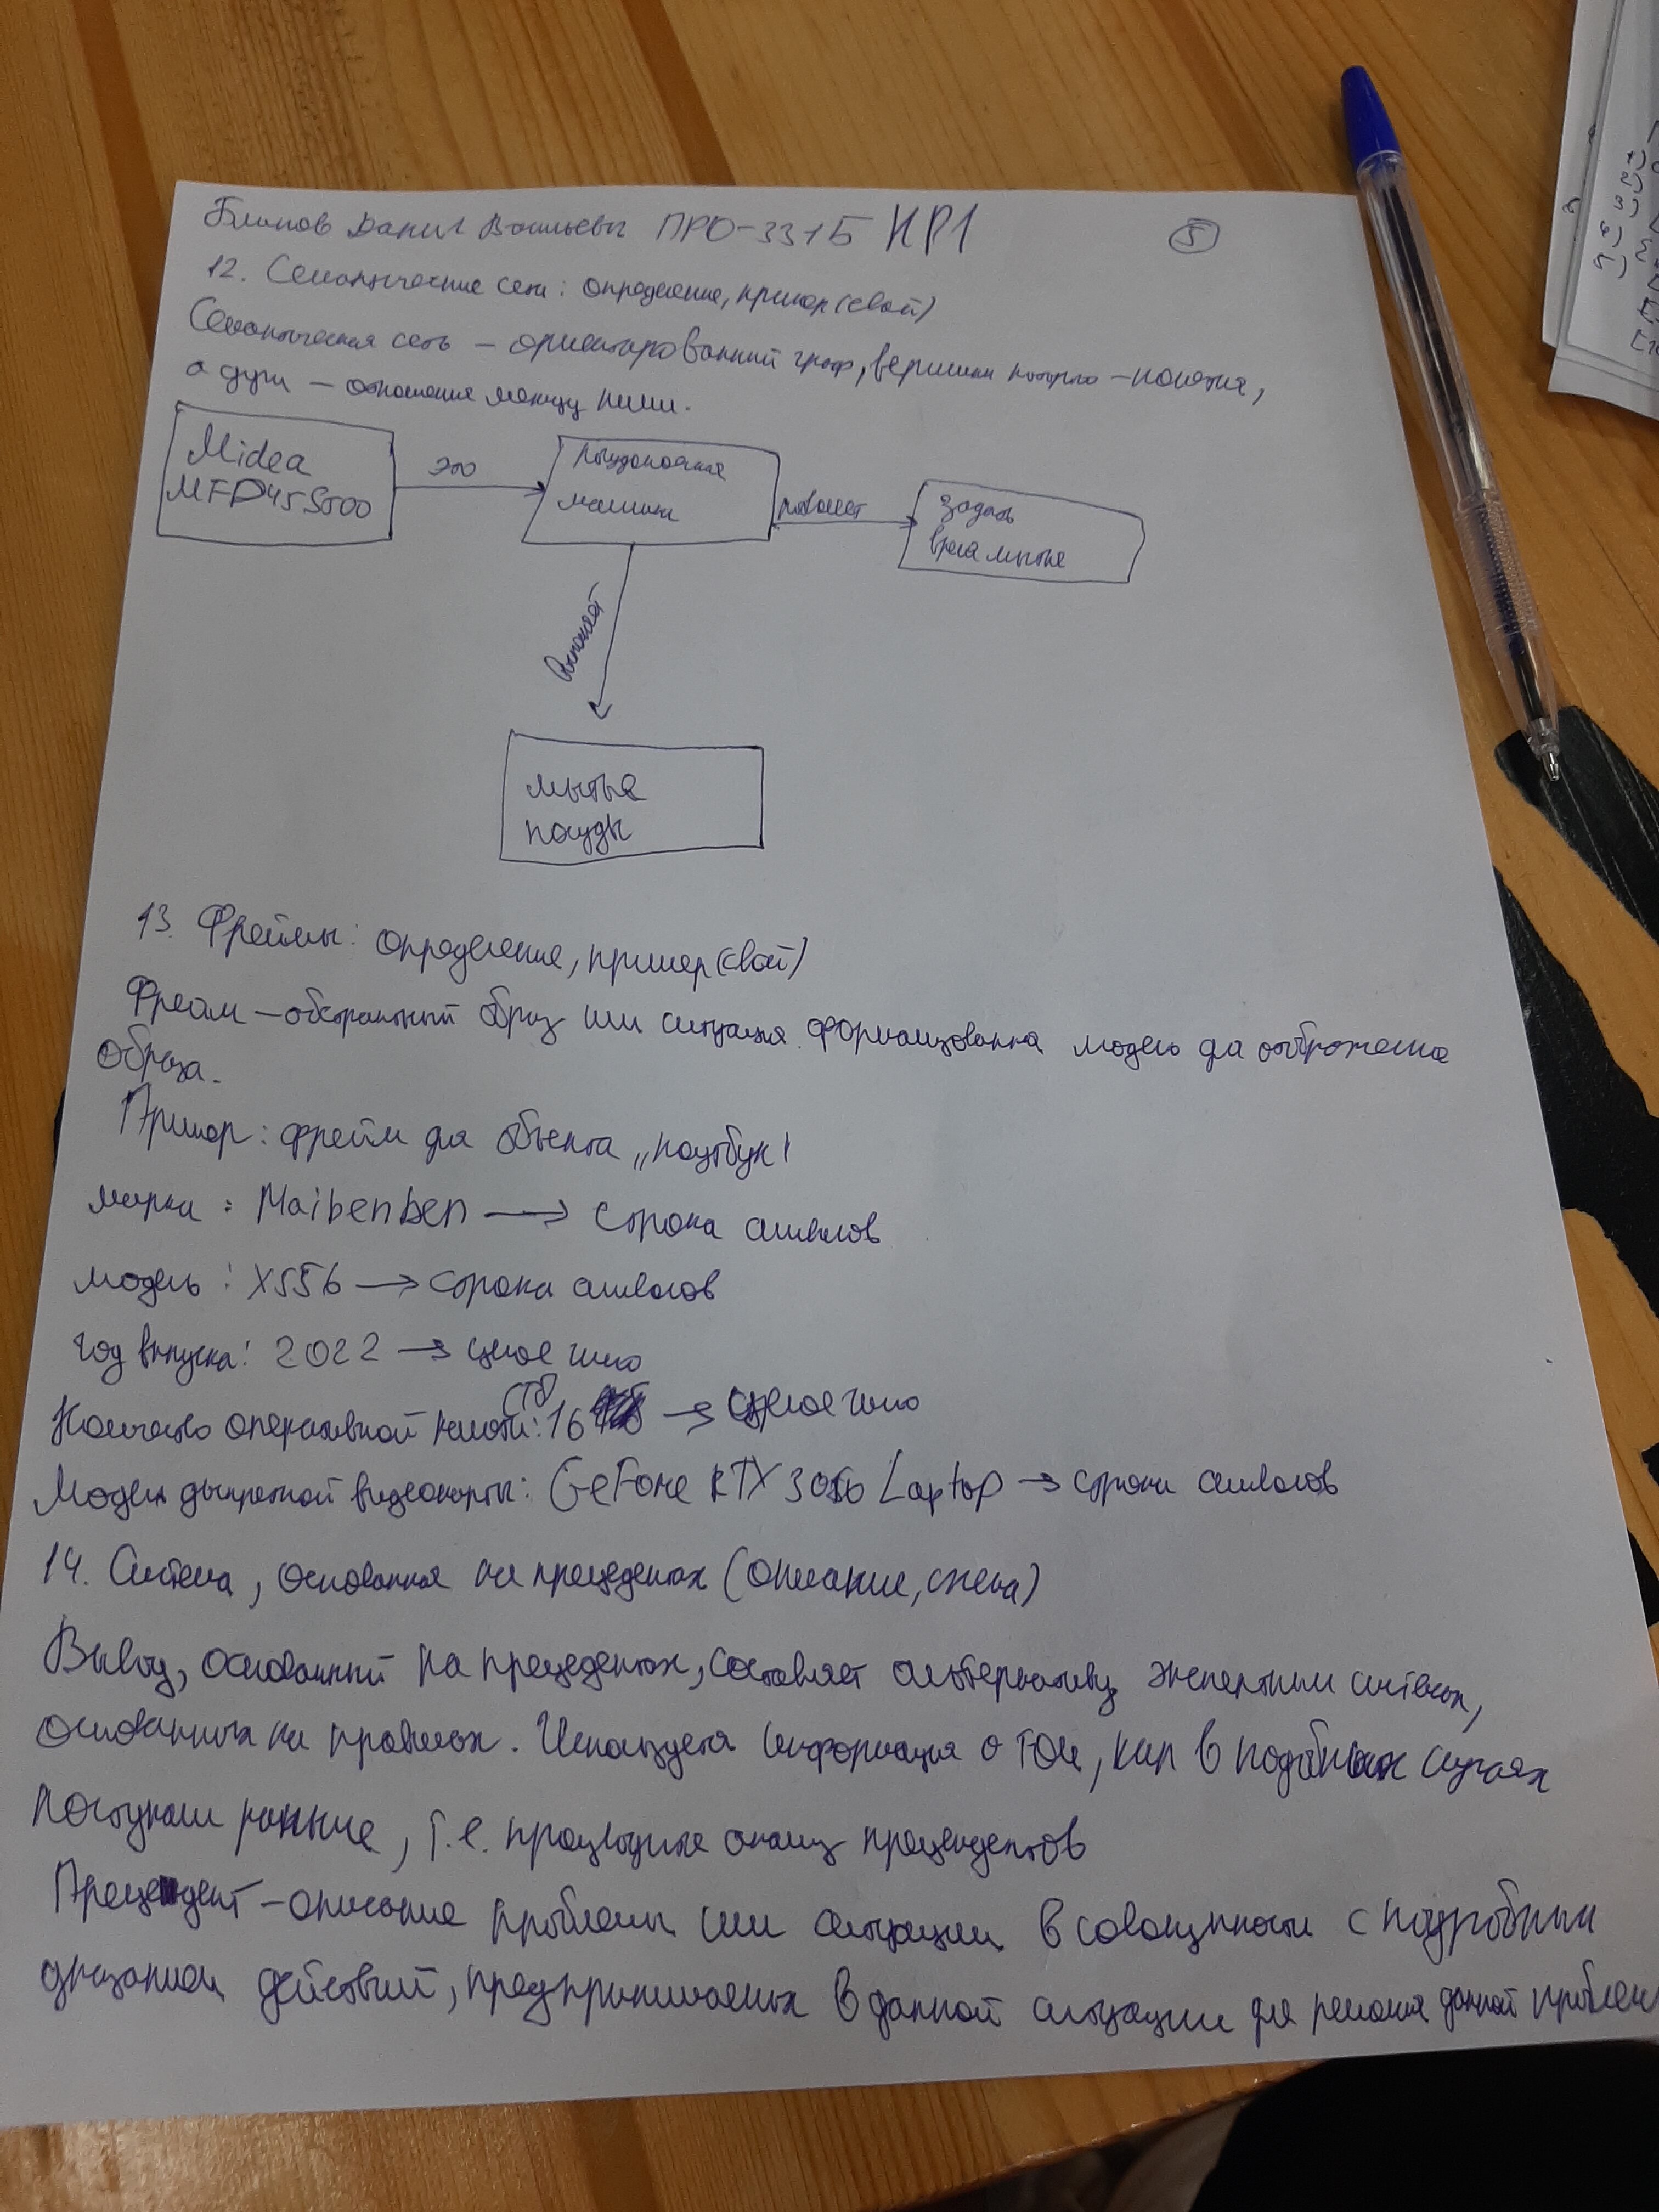 Данил Васильевич ПРО-331Б КР1 5
12. Семантические сети: определение, пример (свой)
Семантическая сеть – ориентированный граф, вершины которого – понятия,
а дуги – отношения между ними.
Midea
MFD45S500
это
посудомоечная
машина
позволяет
задать
время мытья
выполняет
мытьё
посуды
13. Фреймы: определение, пример (свой)
Фрейм – абстрактный образ или ситуация формализованная модель для отображения
образа.
Пример: фрейм для объекта „ноутбук"
марка: Maibenben → строка символов
модель: X556 → строка символов
год выпуска: 2022 → целое число
Количество оперативной памяти: 16 → целое число
Модель дискретной видеокарты: GeForce RTX Laptop → строка символов
14. Система, основанная на прецедентах (описание, схема)
Вывод, основанный на прецедентах, составляет альтернативу экспертным системам,
основанных на правилах. Используется информация о том, как в подобных случаях
поступали раньше, т.е. анализ прецендентов
Прецендент – описание проблемы или ситуации в совокупности с подробным
указанием действий, предпринимаемых в данной ситуации для решения данной проблем